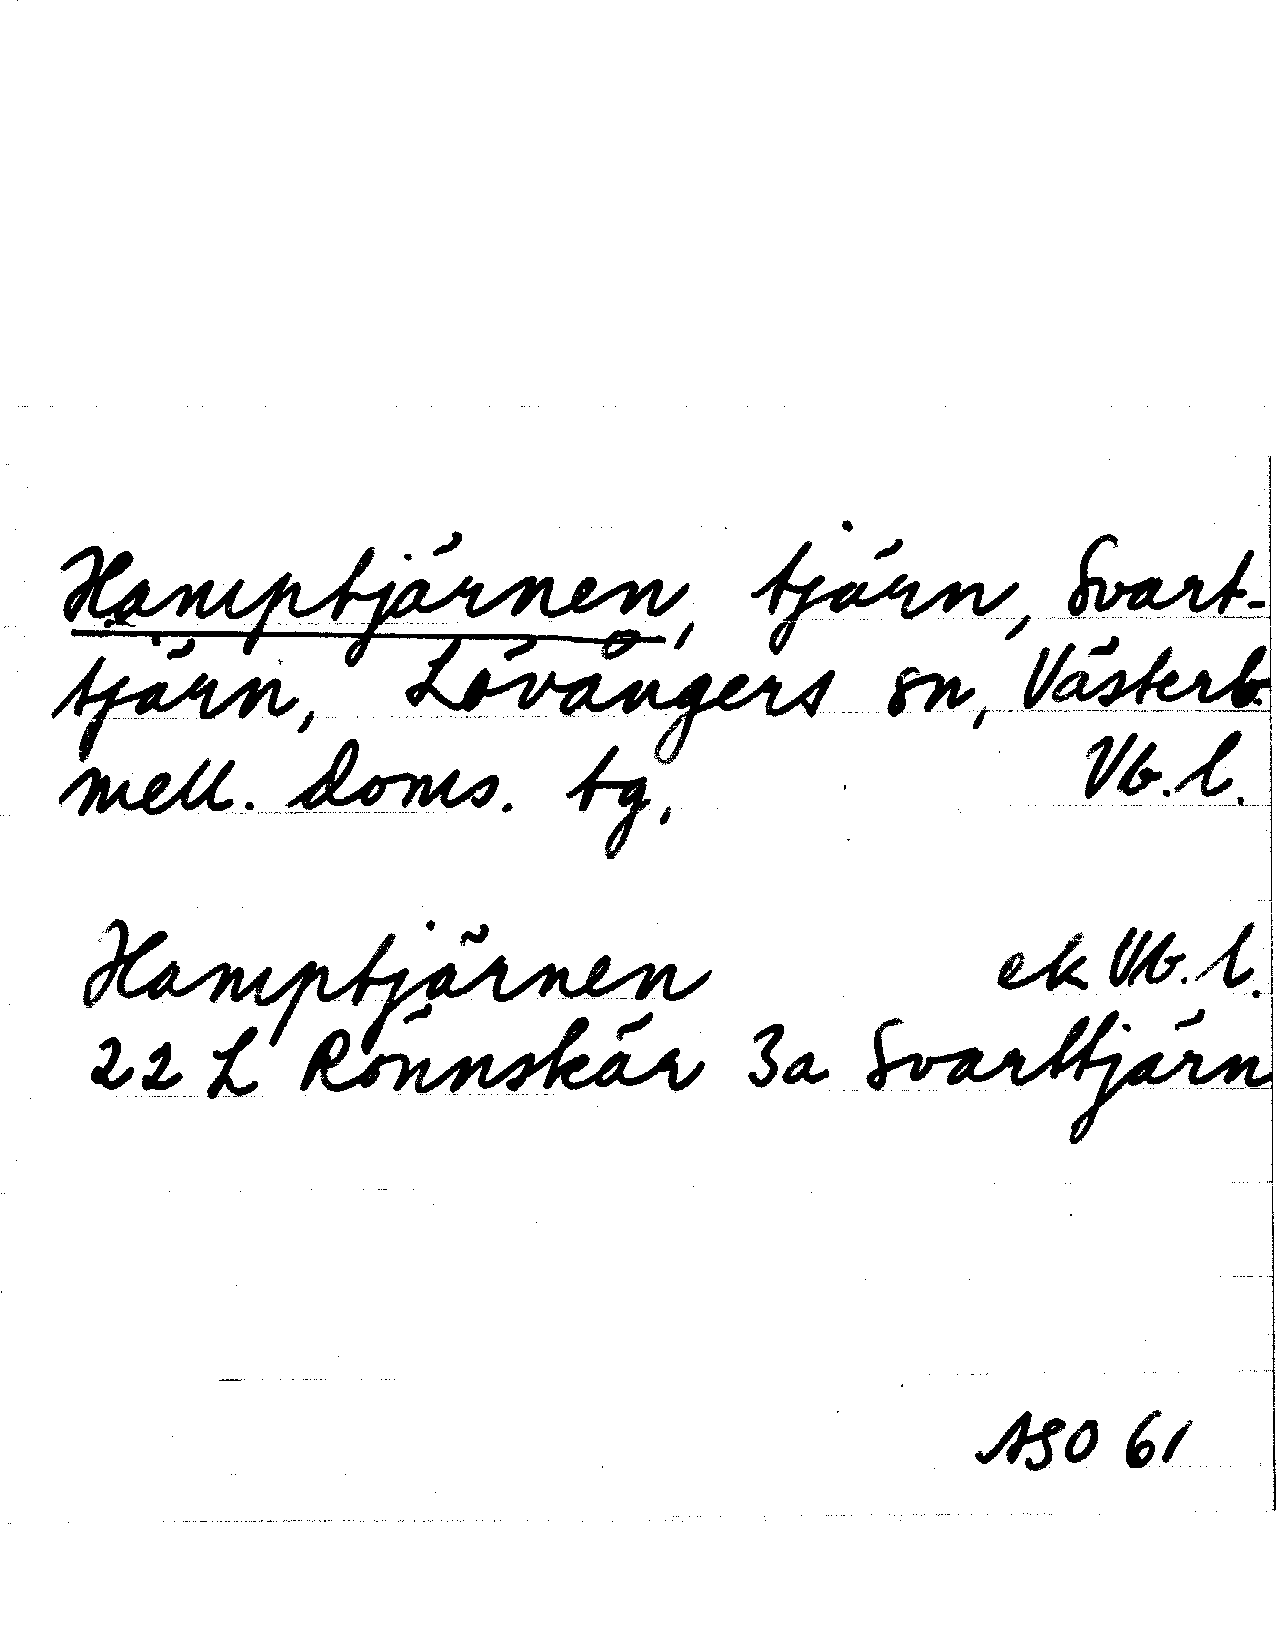 Hamptjärnen, tjärn, Svart-
tjärn, Lövångers sn, Västerb.
mell. doms. tg. Vb. l.
Hamptjärnen ek Vb. l.
22 L Rönnskär 3a Svarttjärn
ASO 61